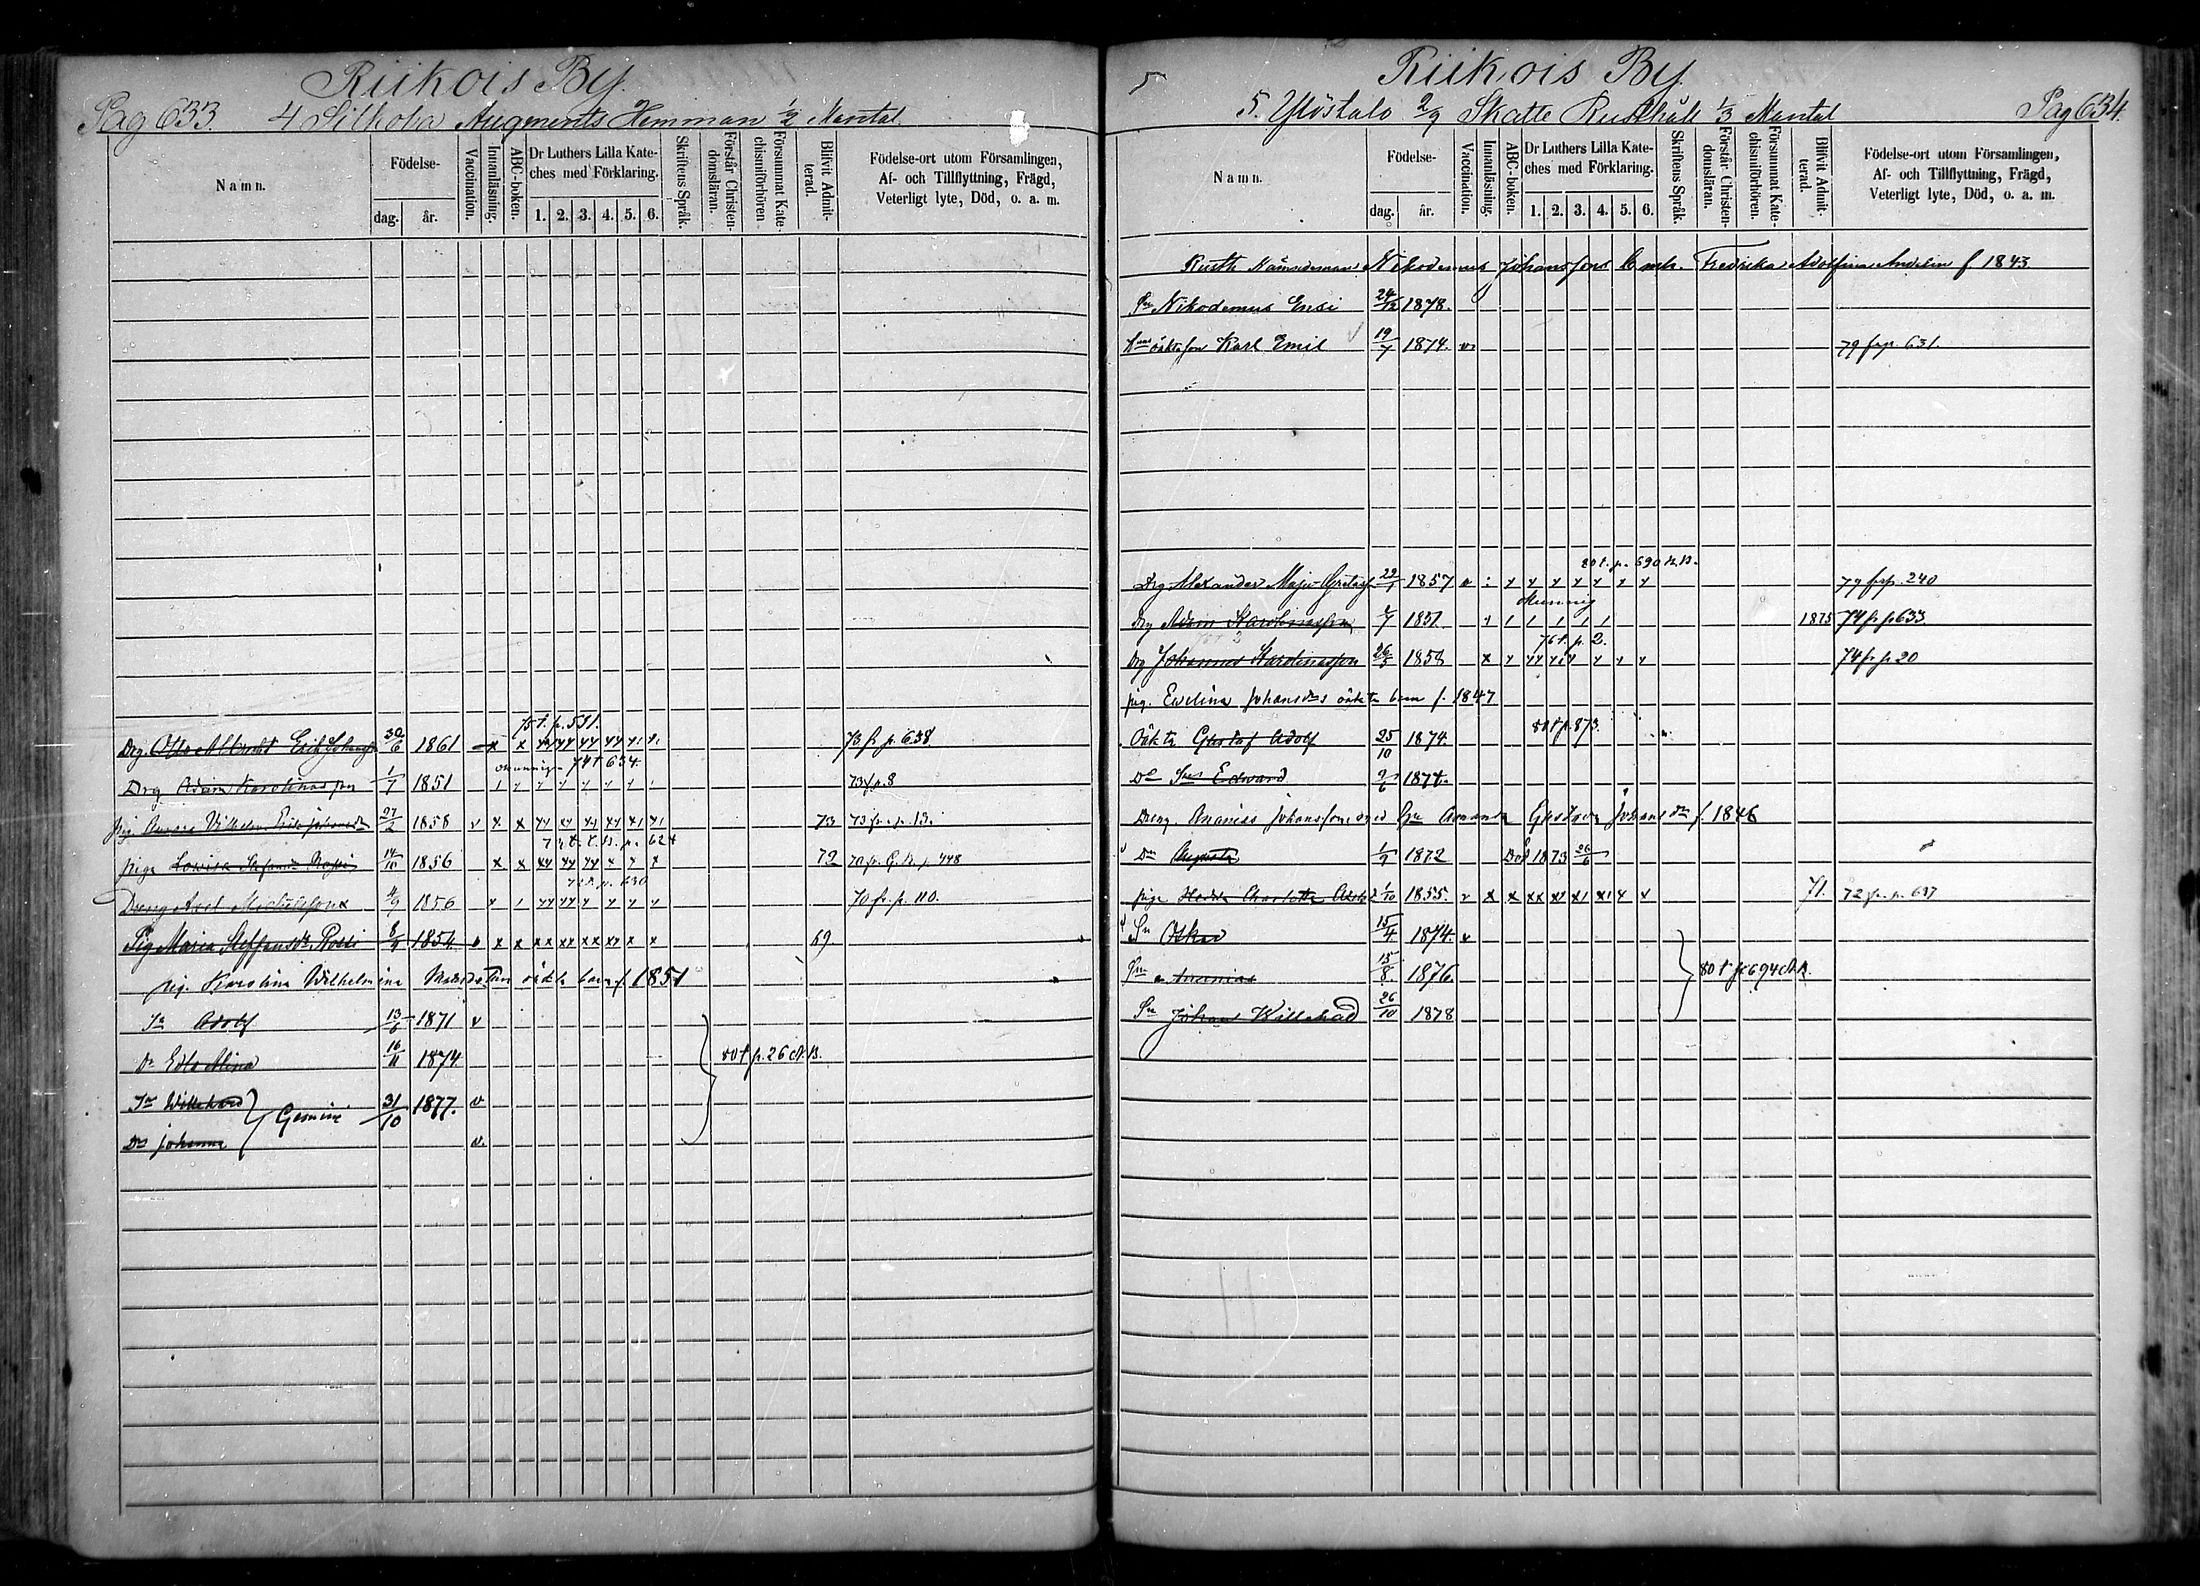 Riikois By.
Pag 633. 4 Silkola Augments Hemman 1/2 Mantal.
Namn.
Födelse-
dag. år.
Vaccination.
Innanläsning.
ABC-boken.
Dr Luthers Lilla Kateches med Förklaring.
1. 2. 3. 4. 5. 6.
Skriftens Språk.
Förstår Christendomsläran.
Försummat Katechismiförhören.
Blifvit Admitterad.
Födelse-ort utom Församlingen,
Af- och Tillflyttning, Frägd,
Veterligt lyte, Död, o. a. m.
75 t. p. 591.
Drg. Otto Albrecht Erik Johansson 30/6 1861 — x x xy yy yy yy y1 y1 73 fr p 638
74 t 634.
Drg Adam Karolinasson 1/7 1851 1 y y y y y y 1 73 f. p. 8
Pig. Wilhelm. Erik Johansdr 27/2 1858 v x x 73 73 fr. p. 13.
p. 624
Piga Lowisa Stefansdr Rossi 14/10 1856 x x xy yy yy x y x 72 70 fr. p. 448
p. 630
Dreng Axel Michelsson 4/9 1856 y 1 yy yy y y y y 70 fr. p. 110.
Pig Maria Steffansdr. Rossi 8/9 1854 v x x xx xx xx xx x x 69.
pig. Karolina Wilhelmina Matsdotters oäkta barn f. 1851
Sn Adolf 13/6 1871 v
80 t p. 26 N.B.
Dr Edla Alina 16/11 1874.
Sn Willehard
Gemini 31/10 1877. v
Dr Johanna v.
5
Riikois By.
5. Ylöstalo 2/9 Skatte Rusthåll 1/3 Mantal Pag 634.
Namn.
Födelse-
dag. år.
Vaccination.
Innanläsning.
ABC-boken.
Dr Luthers Lilla Kateches med Förklaring.
1. 2. 3. 4. 5. 6.
Skriftens Språk.
Förstår Christendomsläran.
Försummat Katechismiförhören.
Blifvit Admitterad.
Födelse-ort utom Församlingen,
Af- och Tillflyttning, Frägd,
Veterligt lyte, Död, o. a. m.
Rusth. Nämndeman Nikodemus Johanssons Fredrika Adolfina Andelin f 1843
Sn Nikodemus Ensi 24/12 1878.
Hans oäkta son Karl Emil 19/7 1874. v. 79 fr p. 631.
80 t. p. 690 N.B.
Drg Alexander Maja-Gretasson 22/1 1857 v : y y y y y y y 79 fr p. 240
Drg Adam Karolinasson 1/7 1851. y 1 1 1 1 1 1 1875 74 fr p 633
76 t. p. 2.
Drg Johannes Karolinasson 26/5 1858 x y yy yy y y y 74 fr p 20
pig. Ewelina Johansdrs oäkta barn f. 1847
80 t p. 873.
Oäkta Gustaf Adolf 25/10 1874.
Do Sn Edward 9/6 1874.
Dreng. Ananias Johansson med Amanda Gustava Johansdr f. 1846
Dr Augusta 1/7 1872 Död 1873 26/6
piga Hedda Charlotta 1/10 1855. v x x xx x1 x1 x1 y x 71. 72 fr. p. 637
Sn Oskar 15/4 1874. v
Sn Ananias 15/8 1876. 80 t p 694 N.B.
Sn Johan Willehad 26/10 1878